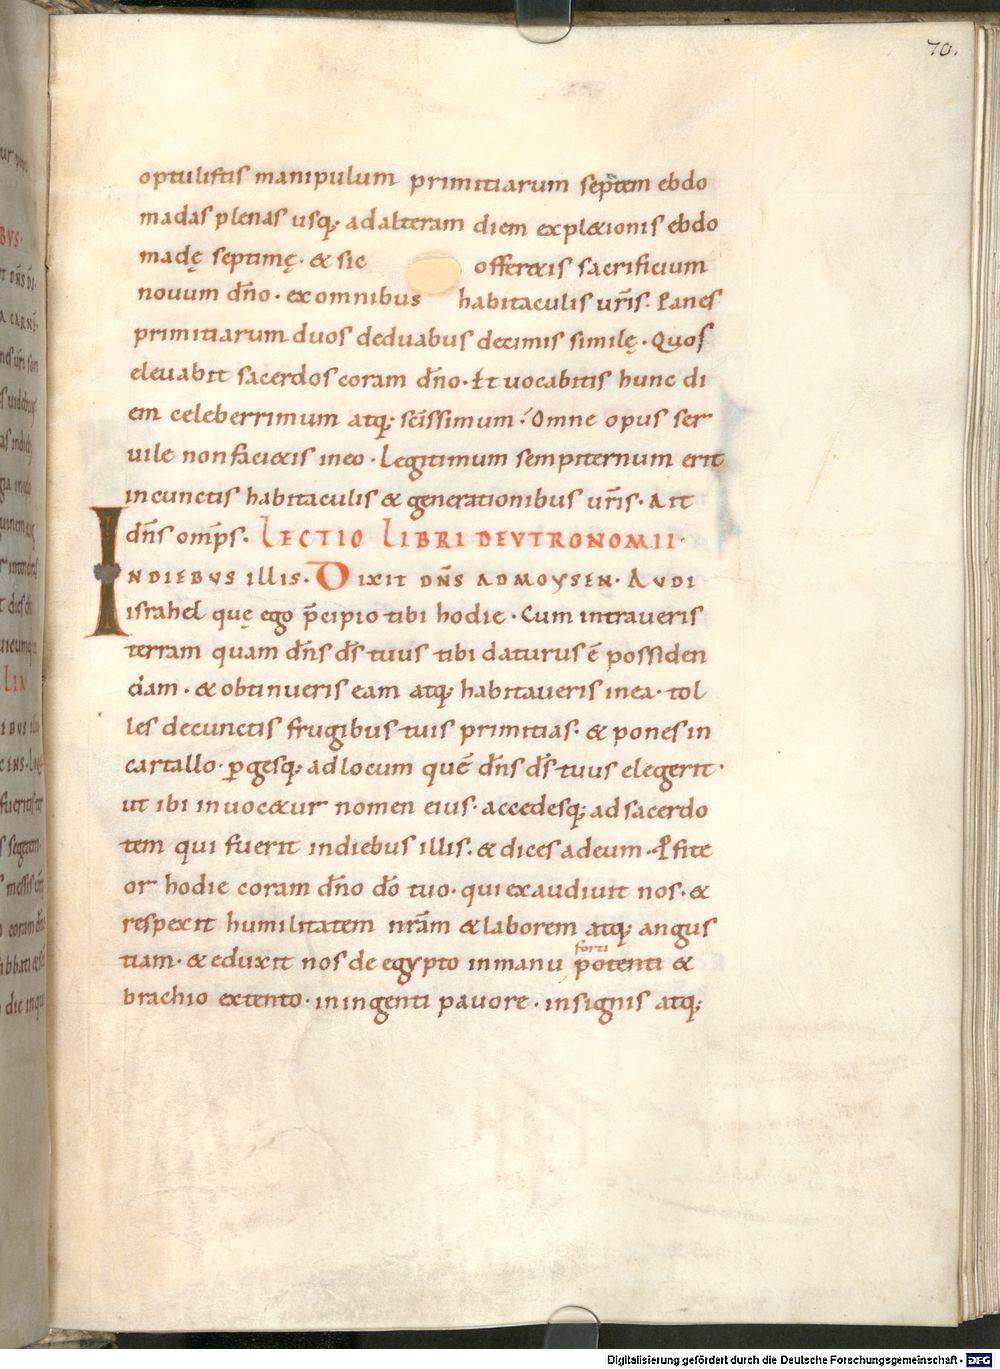 70.
optulistis manipulum primitiarum septem ebdo
madas plenas usq; ad alteram diem expletionis ebdo
madę septimę. & sic offeretis sacrificium
nouum dn̄o. ex omnibus habitaculis ur̄is. Panes
primitiarum duos de duabus decimis similę. Quos
eleuabit sacerdos coram dn̄o. Et uocabitis hunc di
em celeberrimum atq; sc̄issimum. Omne opus ser
uile non facietis in eo. Legitimum sempiternum erit
in cunctis habitaculis & generationibus ur̄is. Ait
dn̄s omp̄s. LECTIO LIBRI DEVTRONOMII.
IN DIEBUS illis. DIXIT DN̄S AD MOYSEN. AUDI
israhel quę ego p̄cipio tibi hodie. Cum intraueris
terram quam dn̄s ds̄ tuus tibi daturus ē possiden
dam. & obtinueris eam atq; habitaueris in ea. tol
les de cunctis frugibus tuis primitias. & pones in
cartallo. ꝑgesq; ad locum quē dn̄s ds̄ tuus elegerit.
ut ibi inuocetur nomen eius. accedesq; ad sacerdo
tem qui fuerit in diebus illis. & dices ad eum. P̄fite
or hodie coram dn̄o dō tuo. qui exaudiuit nos. &
respexit humilitatem nr̄am & laborem atq; angus
forti
tiam. & eduxit nos de egypto in manu potenti &
brachio extento. in ingenti pauore. in signis atq;
Digitalisierung gefördert durch die Deutsche Forschungsgemeinschaft - DFG